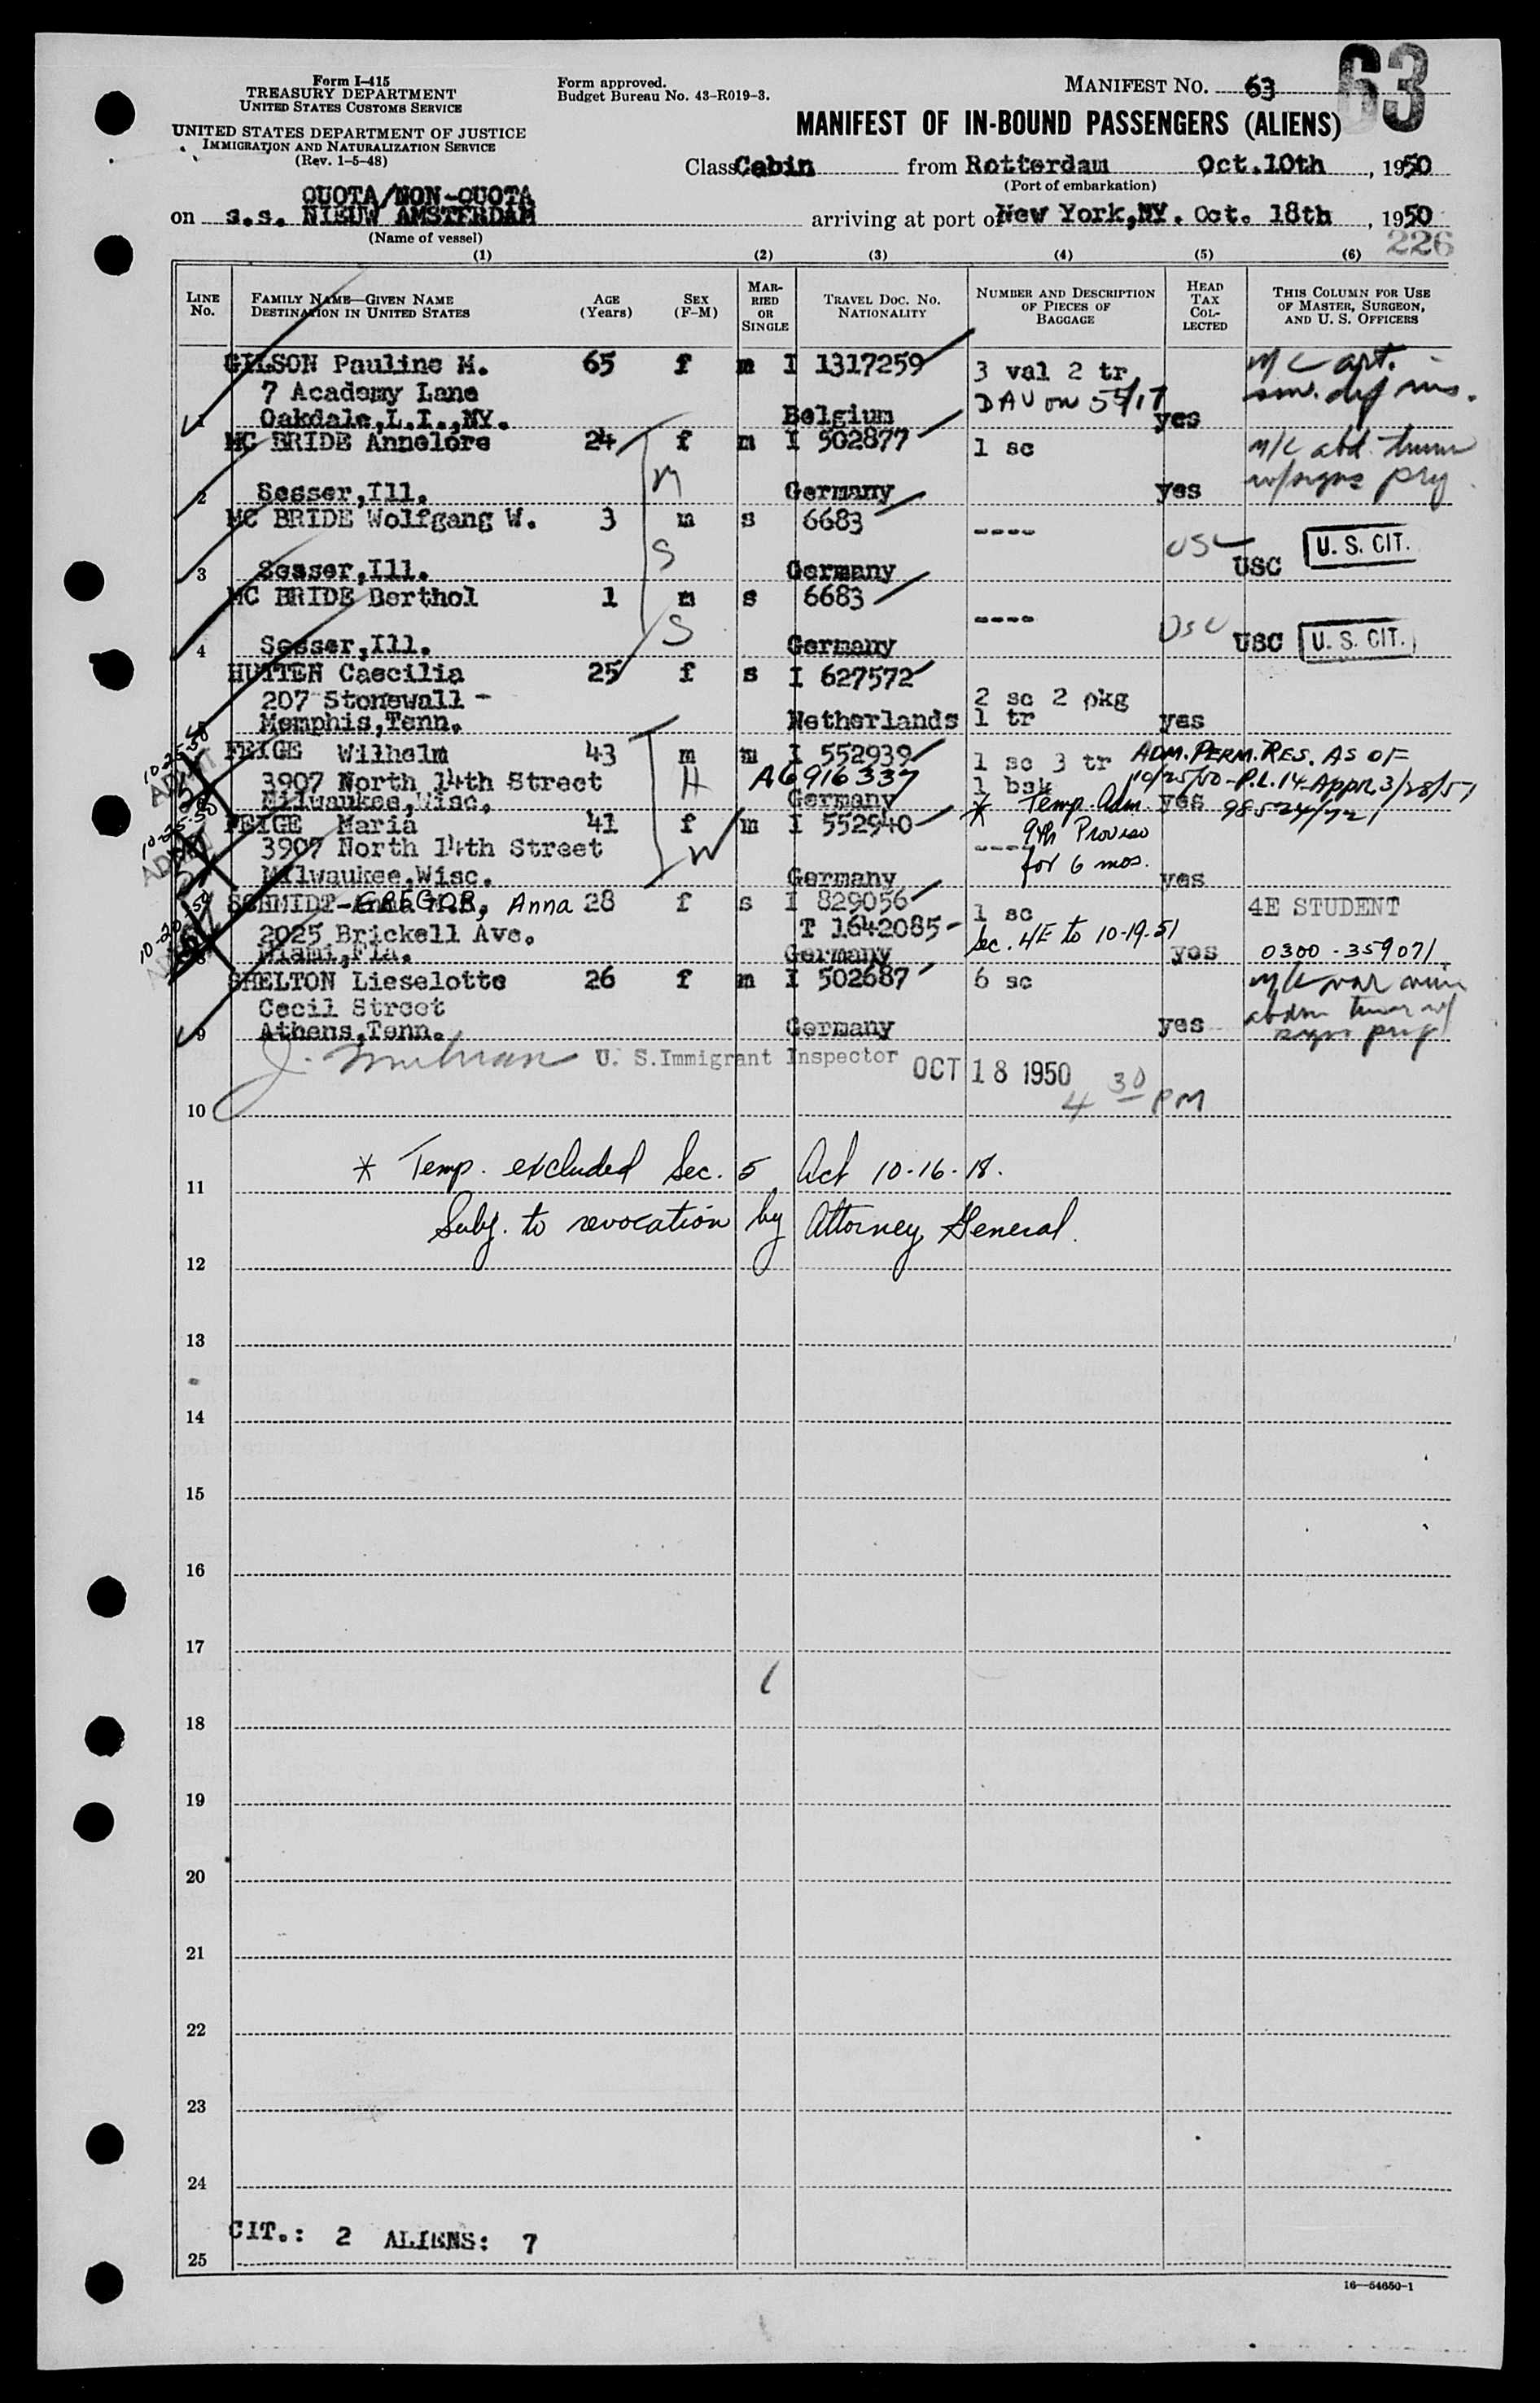 Form I-415
TREASURY DEPARTMENT
UNITED STATES CUSTOMS SERVICE
UNITED STATES DEPARTMENT OF JUSTICE
IMMIGRATION AND NATURALIZATION SERVICE
(Rev. 1-5-48)
Form approved.
Budget Bureau No. 43-R019-3.
MANIFEST NO. 63
63
MANIFEST OF IN-BOUND PASSENGERS (ALIENS)
Class Cabin from Rotterdam Oct.10th, 1950
(Port of embarkation)
QUOTA/NON-QUOTA
on s.s. NIEUW AMSTERDAM arriving at port of New York,NY. Oct. 18th, 1950
(Name of vessel)
226
(1) (2) (3) (4) (5) (6)
LINE No.
FAMILY NAME—GIVEN NAME
DESTINATION IN UNITED STATES
AGE (Years)
SEX (F-M)
MARRIED OR SINGLE
TRAVEL DOC. NO.
NATIONALITY
NUMBER AND DESCRIPTION OF PIECES OF BAGGAGE
HEAD TAX COLLECTED
THIS COLUMN FOR USE OF MASTER, SURGEON, AND U. S. OFFICERS
GILSON Pauline M. 65 f m I 1317259 3 val 2 tr m/c art.
7 Academy Lane DAV on
1 Oakdale,L.I.,NY. Belgium yes
MC BRIDE Annelore 24 f m I 502877 1 sc m/c abd.
M
2 Sesser,Ill. Germany yes
MC BRIDE Wolfgang W. 3 m s 6683 ----
S USC U. S. CIT.
3 Sesser,Ill. Germany USC
MC BRIDE Berthol 1 m s 6683 ----
S USC
4 Sesser,Ill. Germany USC U. S. CIT.
HUTTEN Caecilia 25 f s I 627572
207 Stonewall - 2 sc 2 pkg
Memphis,Tenn. Netherlands 1 tr yes
10-25-50 FEIGE Wilhelm 43 m m I 552939 1 sc 3 tr ADM. PERM. RES. AS OF
3907 North 14th Street H A6916337 1 bsk 10/25/50-P.L.14-Appr. 3/28/51
Milwaukee,Wisc. Germany * Temp. Adm. yes
10-25-50 FEIGE Maria 41 f m I 552940 9th Proviso
3907 North 14th Street W ---- for 6 mos.
Milwaukee,Wisc. Germany yes
SCHMIDT-GREGOR, Anna 28 f s I 829056 1 sc 4E STUDENT
10-20-50 2025 Brickell Ave. T 1642085 Sec. 4E to 10-19-51
8 Miami,Fla. Germany yes 0300-359071
SHELTON Lieselotte 26 f m I 502687 6 sc
Cecil Street
9 Athens,Tenn. Germany yes
U. S. Immigrant Inspector OCT 18 1950
4 30 PM
10
* Temp. excluded Sec. 5 Act 10-16-18.
11
Subj. to revocation by Attorney General.
12
13
14
15
16
17
18
19
20
21
22
23
24
CIT.: 2 ALIENS: 7
25
16—54650-1